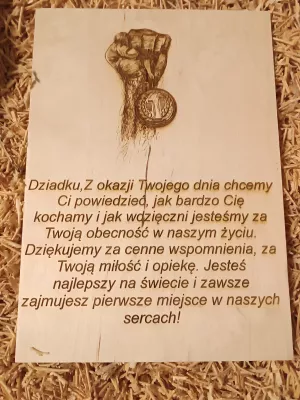 Dziadku,Z okazji Twojego dnia chcemy
Ci powiedzieć, jak bardzo Cię
kochamy i jak wdzięczni jesteśmy za
Twoją obecność w naszym życiu.
Dziękujemy za cenne wspomnienia, za
Twoją miłość i opiekę. Jesteś
najlepszy na świecie i zawsze
zajmujesz pierwsze miejsce w naszych
sercach!